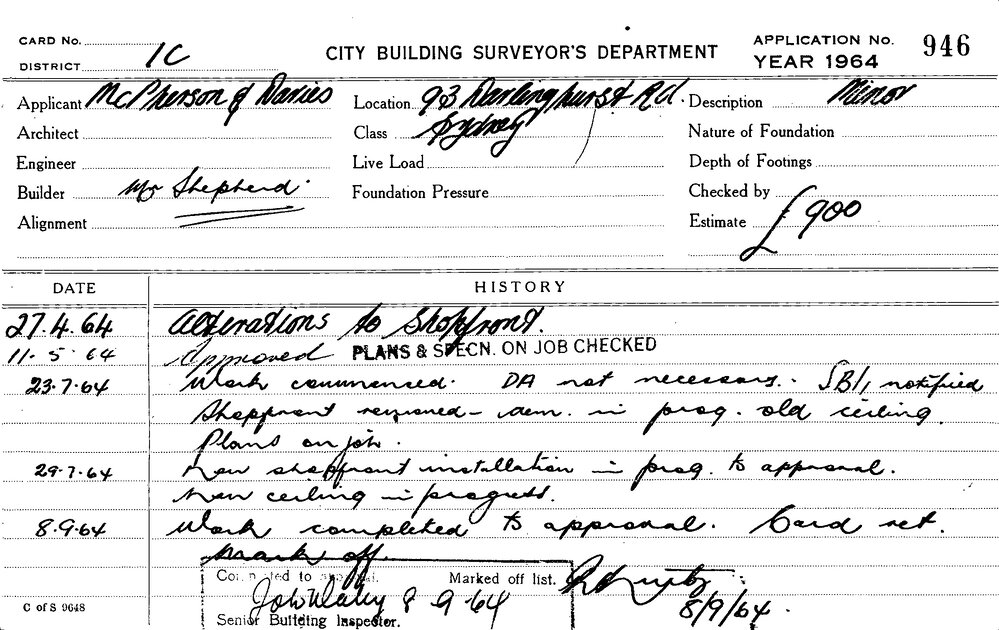 CARD No.
DISTRICT 1C
CITY BUILDING SURVEYOR'S DEPARTMENT
APPLICATION No. 946
YEAR 1964
Applicant McPherson & Davies Location 93 Darlinghurst Rd. Description Minor
Architect Class Sydney Nature of Foundation
Engineer Live Load Depth of Footings
Builder Mr Shepherd. Foundation Pressure Checked by
Alignment Estimate £900
DATE HISTORY
27.4.64 Alterations to Shopfront.
11.5.64 Approved PLANS & SPECN. ON JOB CHECKED
23.7.64 Work commenced. DA not necessary. SBI, notified
Shopfront removed - dem. in prog. old ceiling
Plans on job.
29.7.64 New shopfront installation in prog. to approval.
New ceiling in progress.
8.9.64 Work completed to approval. Card ret.
Mark off.
Completed to approval. Marked off list.
8 9 64 8/9/64.
Senior Building Inspector.
C of S 9648